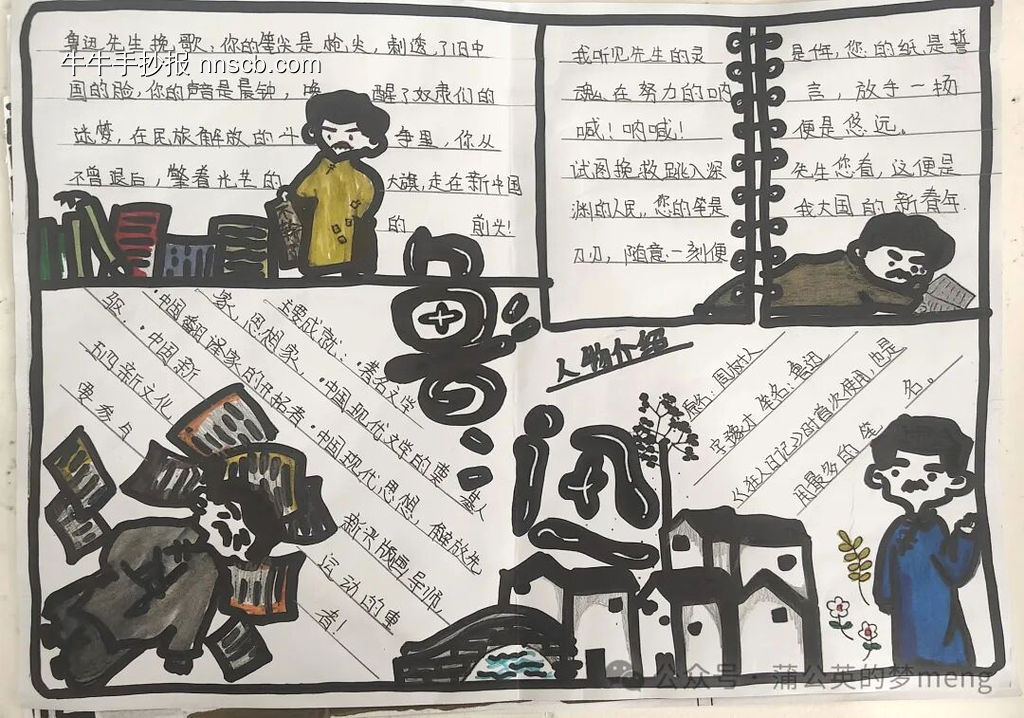 鲁迅先生挽歌：你的笔尖是枪尖，刺透了旧中
牛牛手抄报 nnscb.com
国的脸，你的声音是晨钟，唤 醒了奴隶们的
迷梦，在民族解放的斗 争里，你从
不曾退后，擎着光芒的 大旗，走在新中国
的 前头！
我听见先生的灵
魂在努力的呐
喊！呐喊！
试图挽救跳入深
渊的人民。您的笔是
刀刃，随意一刻便
是伤，您的纸是誓
言，放手一扬
便是悠远。
先生您看，这便是
我大国的新春年.
鲁迅
人物介绍
原名：周樟寿
字豫才 笔名：鲁迅
《狂人日记》时首次使用，也是
用最多的笔
名。
主要成就：·著名文学
家、思想家、·中国现代文学的奠 基人
·中国翻译家的开拓者·中国现代思想，解放先
驱、·中国新 新兴版画导师，
五四新文化 运动的重
要参与 者！
公众号·蒲公英的梦meng